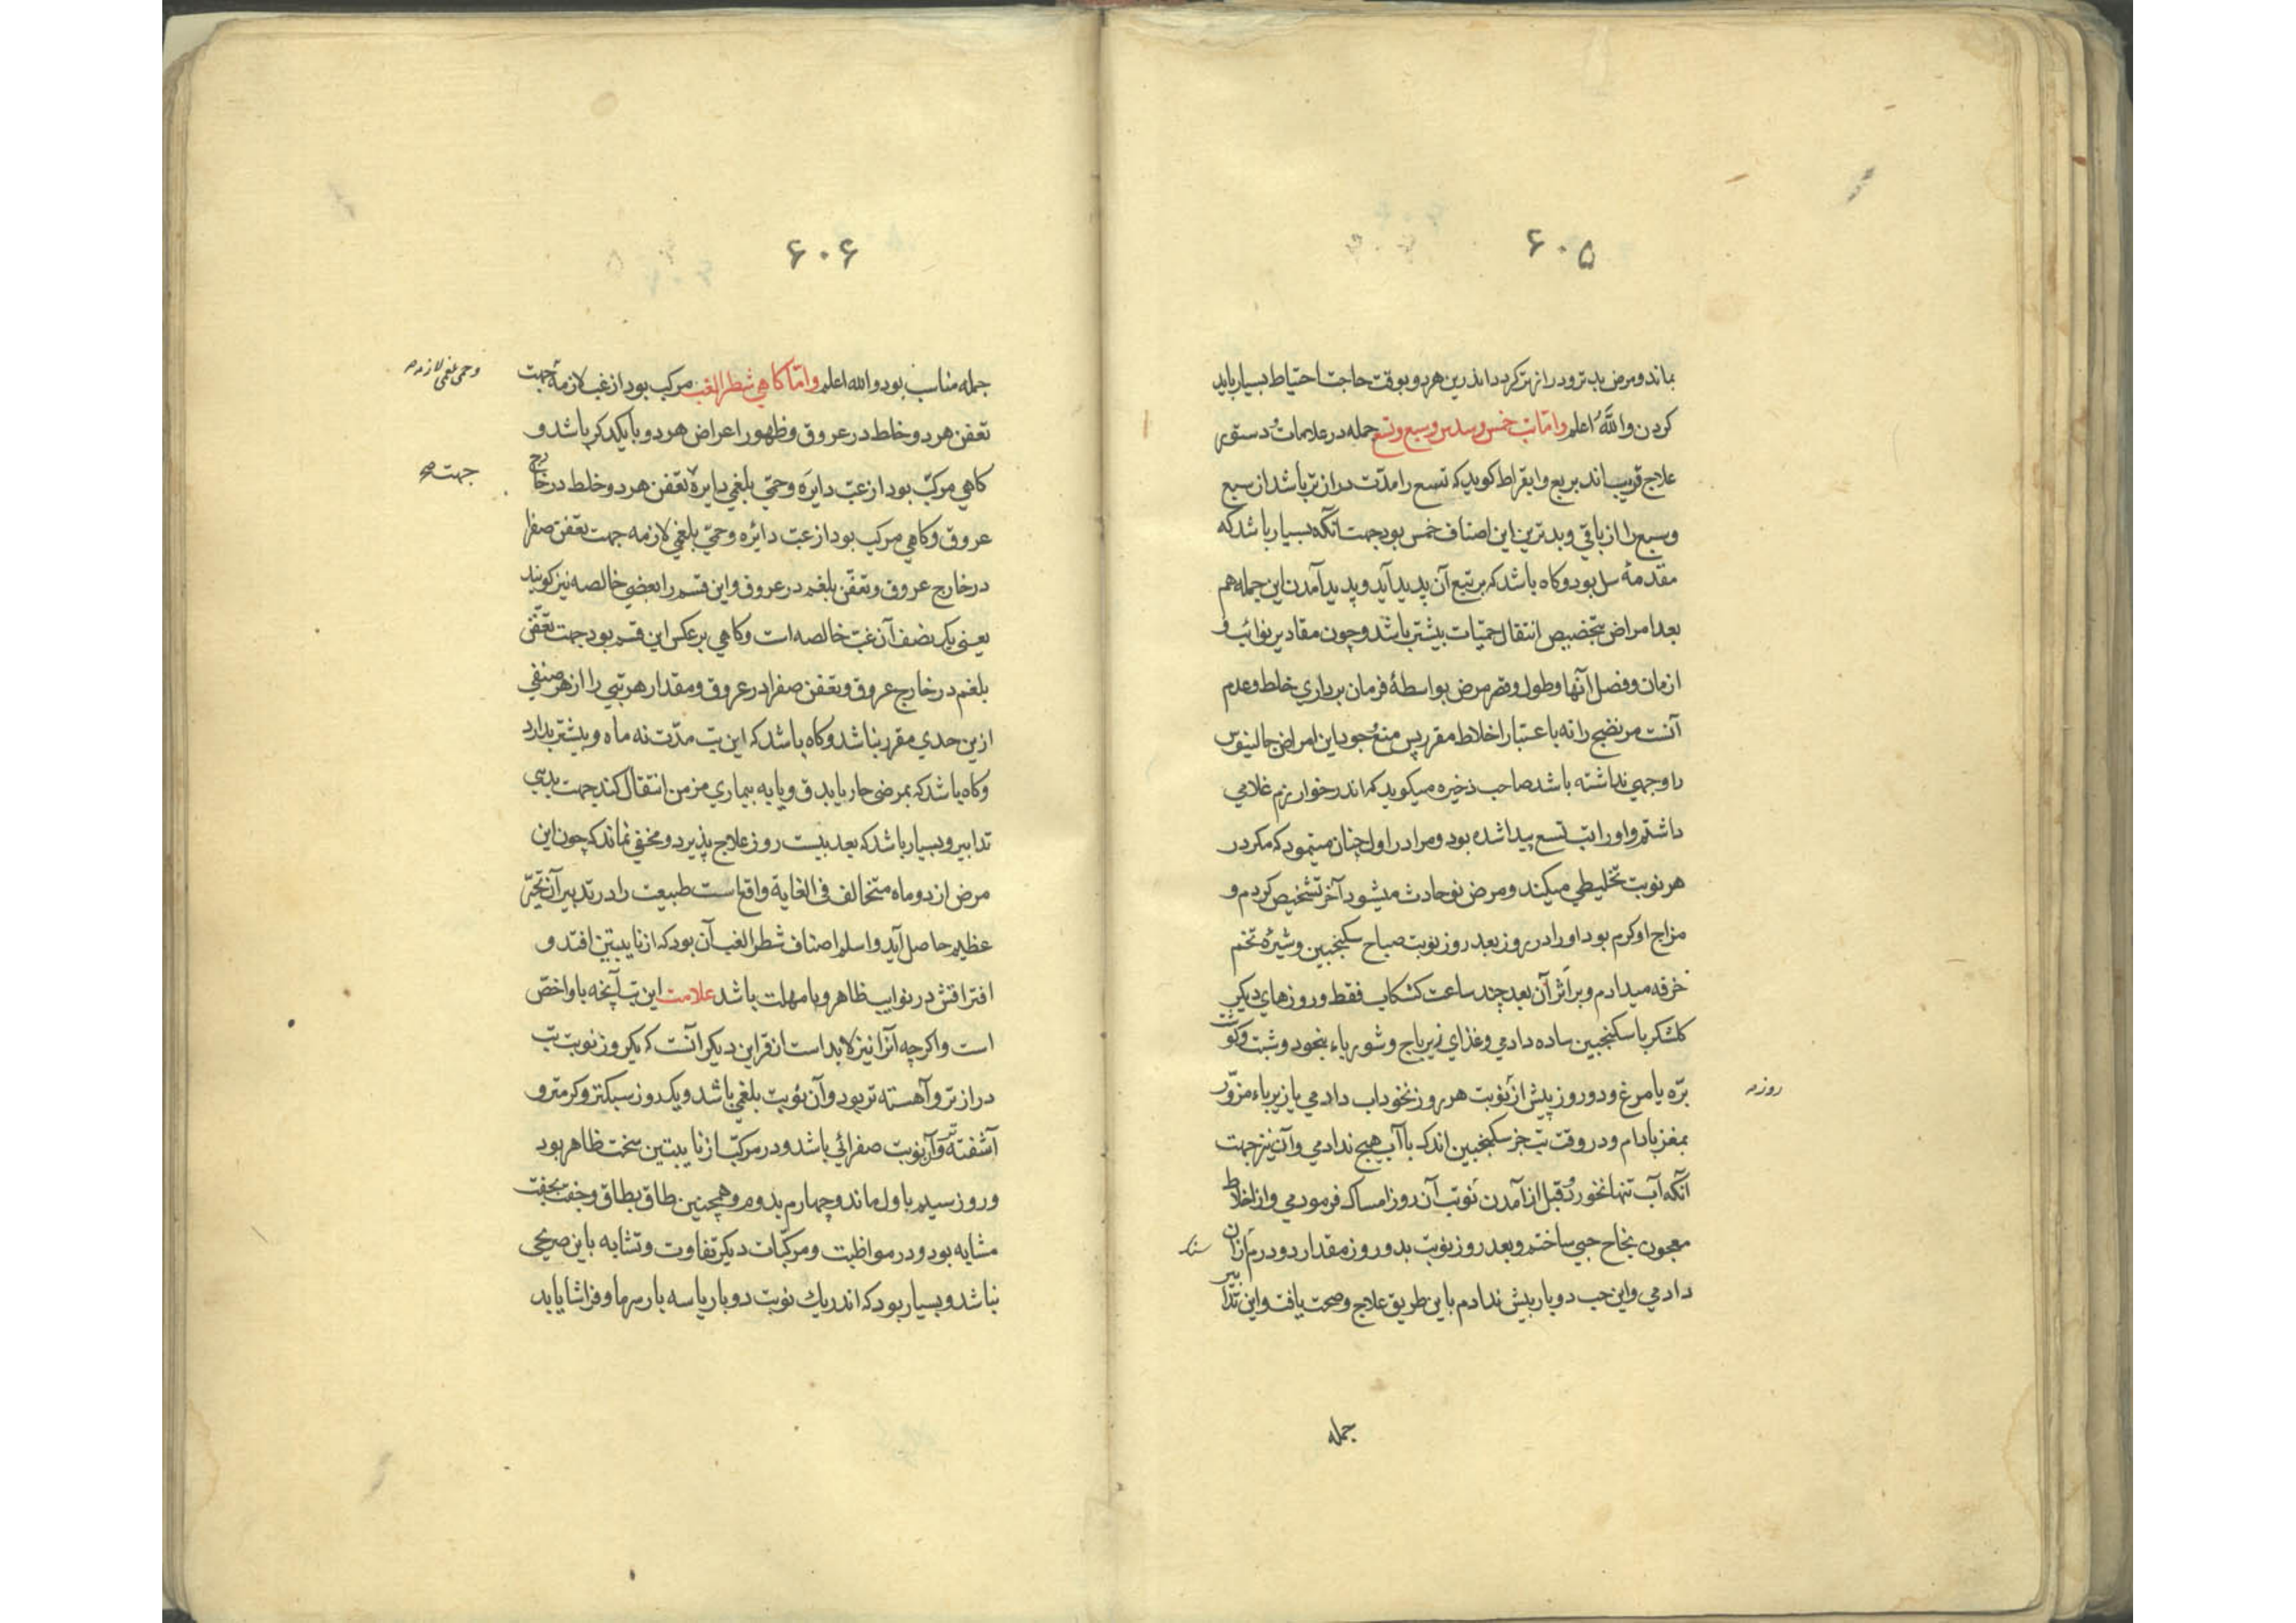 ۶۰۵
بماند و مرض بدتر و درازتر کردد اندرین هر دو بوقت حاجت احتیاط بسیار باید
کردن والله اعلم واما تب خمس و سدس و سبع و تسع جمله در علامات و دستور
علاج قریب‌اند بربع و ابقراط کوید که تسع را مدت درازتر باشد از سبع
و سبع را از باقی و بدترین این اصناف خمس بود جهت آنکه بسیار باشد که
مقدمهٔ سل بود و کاه باشد که بر تبع آن پدید آید و پدید آمدن این جمله هم
بعد امراض بتخصیص انتقال حمیات بیشتر باشد و چون مقادیر نوائب و
ازمان و فصل آنها و طول و قصر مرض بواسطهٔ فرمان برداری خلط و عدم
آنست مر نضج را نه باعتبار اخلاط مقرر پس منع وجود این امراض جالینوس
را وجهی نداشته باشد صاحب ذخیره میکوید که اندر خوارزم غلامی
داشتم و او را تب تسع پیدا شده بود و مرا در اول چنان مینمود که مکر در
هر نوبت تخلیطی میکند و مرض نو حادث میشود آخر تشخیص کردم و
مزاج او کرم بود او را در روز بعد روز نوبت صباح سکنجبین و شیرهٔ تخم
خرفه میدادم و بر اثر آن بعد چند ساعت کشکاب فقط و روزهای دیکر
کلشکر با سکنجبین ساده دادمی و غذای زیرباج و شورباء بنخود و شبت و کوشت
بره یا مرغ و دو روز پیش از نوبت هر روز نخوداب دادمی یا زیرباء مزور
روزه
بمغز بادام و در وقت تب جز سکنجبین اندک با آب هیچ ندادمی و آن نیز جهت
آنکه آب تنها نخورد و قبل از آمدن نوبت آن روز امساک فرمودمی و از اخلاط
معجون نجاح حبی ساختم و بعد روز نوبت بدو روز مقدار دو درم ازان
دادمی و این حب دو بار بیش ندادم باین طریق علاج و صحت یافت و این تدابیر
جمله
۶۰۶
جمله مناسب بود والله اعلم واما کاهی شطر الغب مرکب بود از غب لازمه جهت
وحمی بلغمی لازمه
تعفن هر دو خلط در عروق و ظهور اعراض هر دو با یکدکر باشد و
کاهی مرکب بود از غب دایره و حمی بلغمی دایره تعفن هر دو خلط در خارج
جهت صح
عروق و کاهی مرکب بود از غب دائره و حمی بلغمی لازمه جهت تعفن صفرا
در خارج عروق و تعفن بلغم در عروق و این قسم را بعضی خالصه نیز کویند
یعنی یک نصف آن غب خالصه است و کاهی بر عکس این قسم بود جهت تعفن
بلغم در خارج عروق و تعفن صفرا در عروق و مقدار هر تبی را از هر صنفی
ازین حدی مقرر نباشد و کاه باشد که این تب مدت نه ماه و بیشتر بدارد
و کاه باشد که بمرضی حار یا بدق و یا به بیماری مزمن انتقال کند جهت بدی
تدابیر و بسیار باشد که بعد بیست روز علاج پذیرد و مخفی نماند که چون این
مرض از دو ماه متخالف فی الغایة واقع است طبیعت را در تدبیر آن تحیر
عظیم حاصل آید و اسلم اصناف شطر الغب آن بود که از نایبتین افتد و
افتراقش در نوایب ظاهر و با مهلت باشد علامت این تب آنچه باو اخص
است و اکرچه آنرا نیز لابد است از قراین دیکر آنست که یکروز نوبت تب
درازتر و آهسته تر بود و آن نوبت بلغمی باشد و یک روز سبکتر و کرمتر و
آشفته تر و آن نوبت صفرائی باشد و در مرکب از نایبتین سخت ظاهر بود
و روز سیم باول ماند و چهارم بدوم و همچنین طاق بطاق و جفت بجفت
مشابه بود و در مواظبت و مرکبات دیکر تفاوت و تشابه باین صریحی
نباشد و بسیار بود که اندر یک نوبت دو بار یا سه بار سرما و فراشا یابد